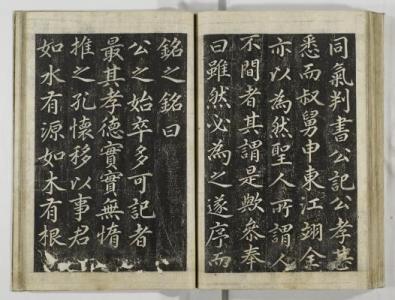 同氣判書公記公孝甚
悉而叔舅申東江翊全
亦以為然聖人所謂人
不間者其謂是歟粲奉
曰雖然必為之遂序而
銘之銘曰
公之始卒多可記者
最其孝德實實無惰
推之孔懷移以事君
如水有源如木有根